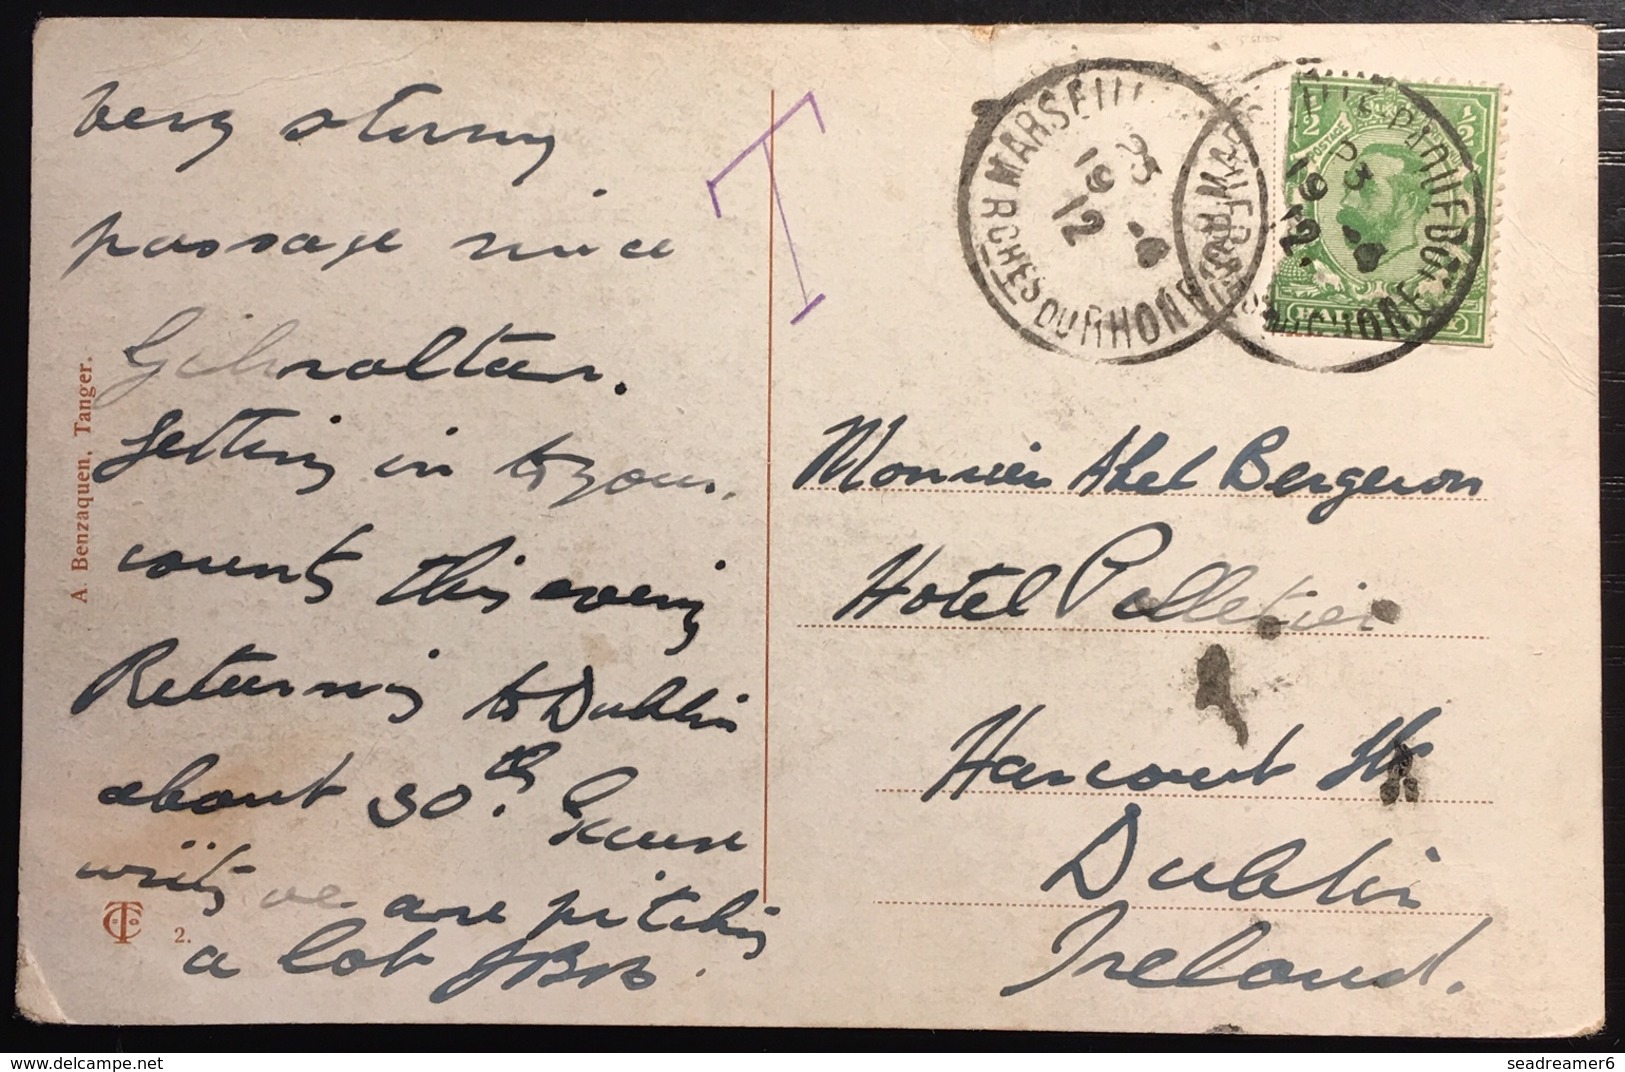 very stormy
passage since
Gibraltar.
Getting in to your
country this evening
Returning to Dublin
about 30th. Excuse
writing we are pitching
a lot JBB.
A. Benzaquen, Tanger.
2.
T
MARSEILLE
BCHES DU RHONE
19
12
½ ½
POSTAGE
MARSEILLE PAQUEBOT
19
12
Monsieur Abel Bergeron
Hotel Pelletier
Harcourt St
Dublin
Ireland.
https://www.delcampe.net
seadreamer6